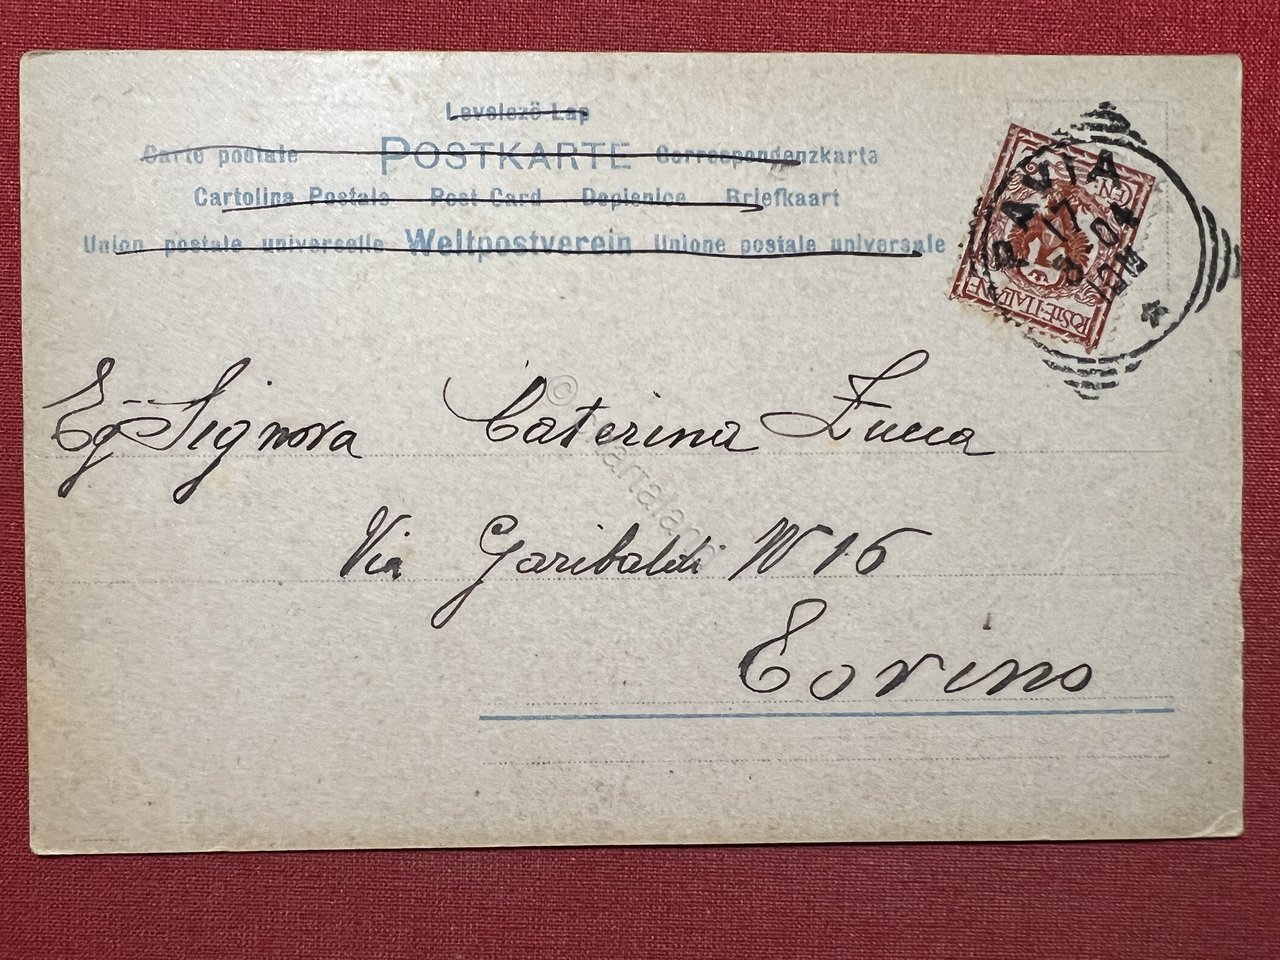 Levelező Lap
Carte postale POSTKARTE Correspondenzkarta
Cartolina Postale Post Card Dopisnice Briefkaart
Union postale universelle Weltpostverein Unione postale universale
PAVIA
17
3 04
12M
CEN.
POSTE ITALIANE
Eg Signora Caterina Zucca
Via Garibaldi N 16
Torino